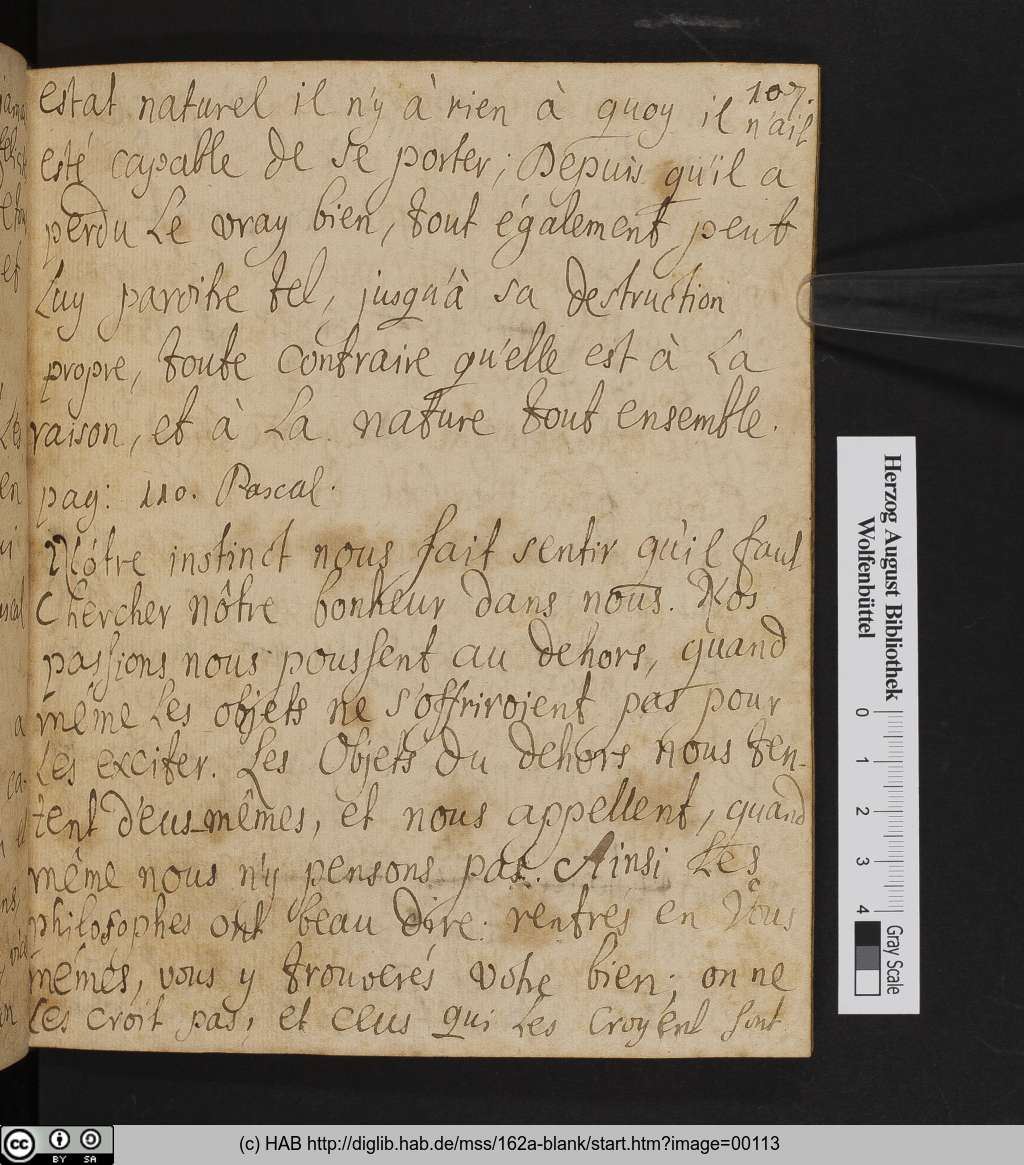 107.
estat naturel il n'y à rien à quoy il n'ait
esté capable de se porter; Depuis qu'il a
perdu Le vray bien, tout également peut
Luy paroitre tel, jusqu'à sa destruction
propre, toute contraire qu'elle est à La
raison, et à La nature tout ensemble.
pag: 110. Pascal.
Nôtre instinct nous fait sentir qu'il faut
Chercher nôtre bonheur dans nous. Nos
passions nous poussent au dehors, quand
même Les objets ne s'offriroient pas pour
Les exciter. Les Objets du dehors nous ten-
tent d'eus-mêmes, et nous appellent, quand
même nous n'y pensons pas. Ainsi Les
philosophes ont beau dire: rentres en Vous
mêmes, vous y trouverés votre bien; on ne
Les croit pas, et ceus qui Les croyent sont
Herzog August Bibliothek
Wolfenbüttel
0 1 2 3 4
Gray Scale
cc BY SA
(c) HAB http://diglib.hab.de/mss/162a-blank/start.htm?image=00113